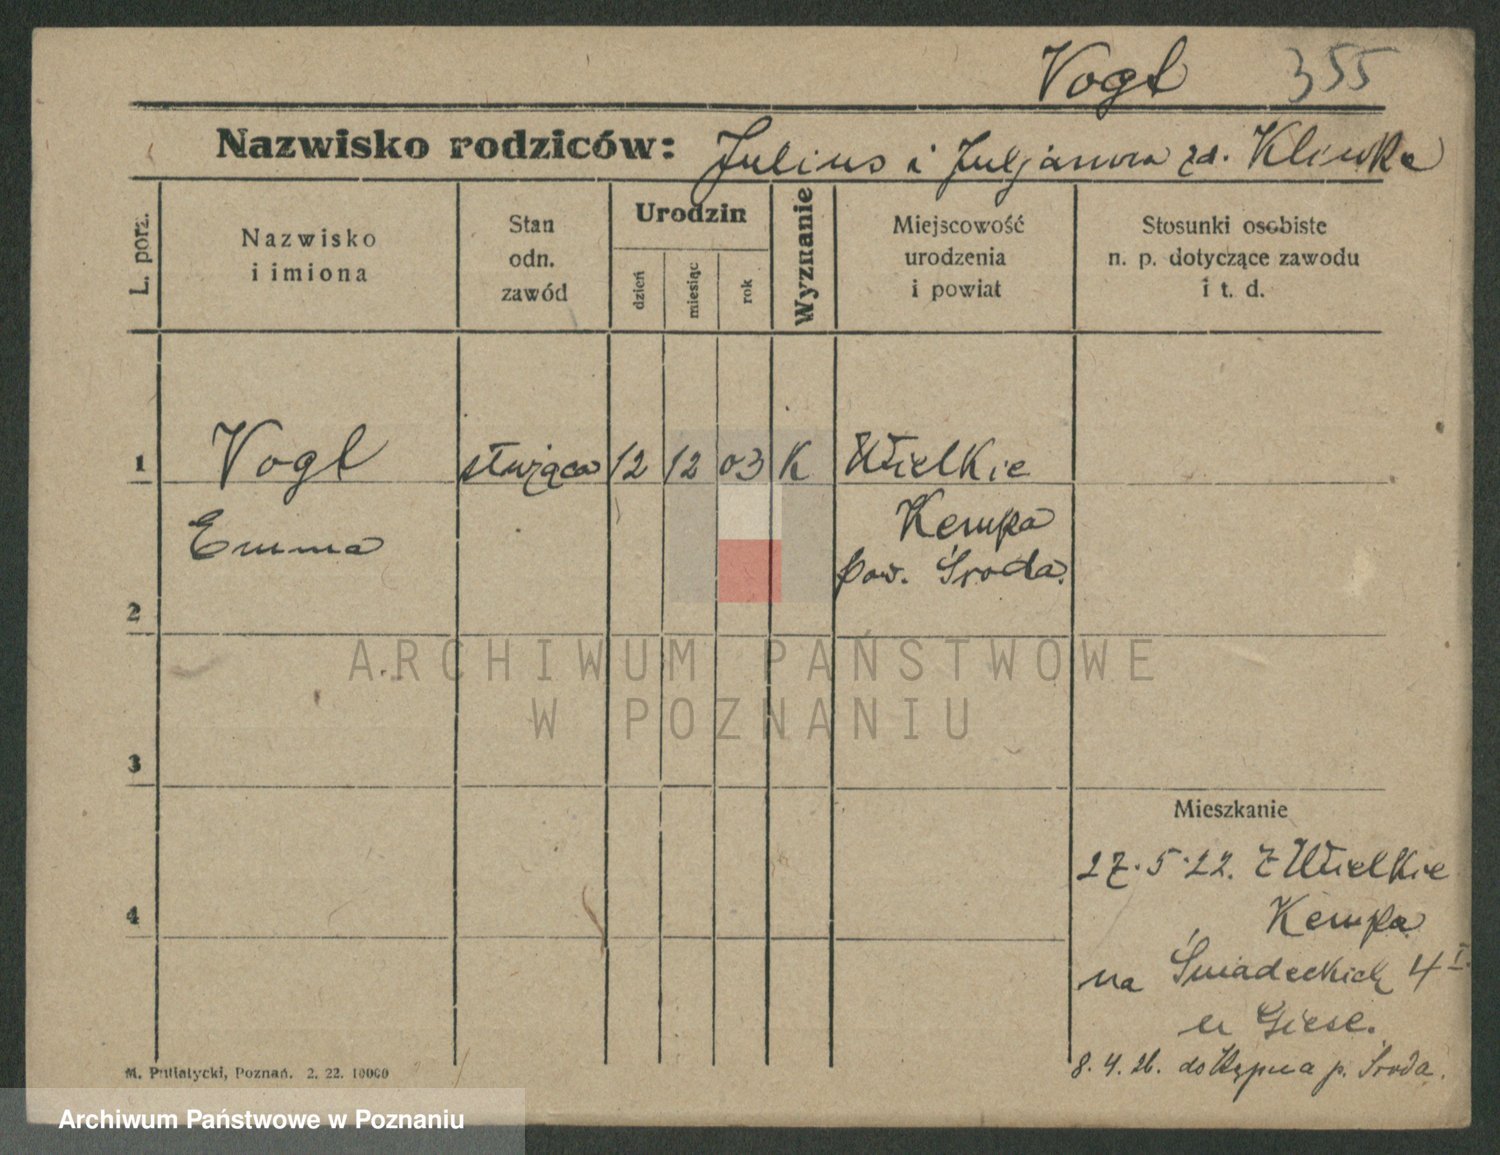 Vogl 355
Nazwisko rodziców: Julius i Juljanna zd. Klimka
L. porz.
Nazwisko
i imiona
Stan
odn.
zawód
Urodzin
dzień
miesiąc
rok
Wyznanie
Miejscowość
urodzenia
i powiat
Stosunki osobiste
n. p. dotyczące zawodu
i t. d.
1 Vogl służąca 12 12 03 K Wielkie
Emma Kempa
pow. Środa.
2
ARCHIWUM PAŃSTWOWE
W POZNANIU
3
Mieszkanie
27.5.22. z Wielkie
4 Kempa
na Śniadeckich 4 I.
u Giese.
8.4.26. do Kępna p. Środa.
M. Putiatycki, Poznań. 2. 22. 10000
Archiwum Państwowe w Poznaniu